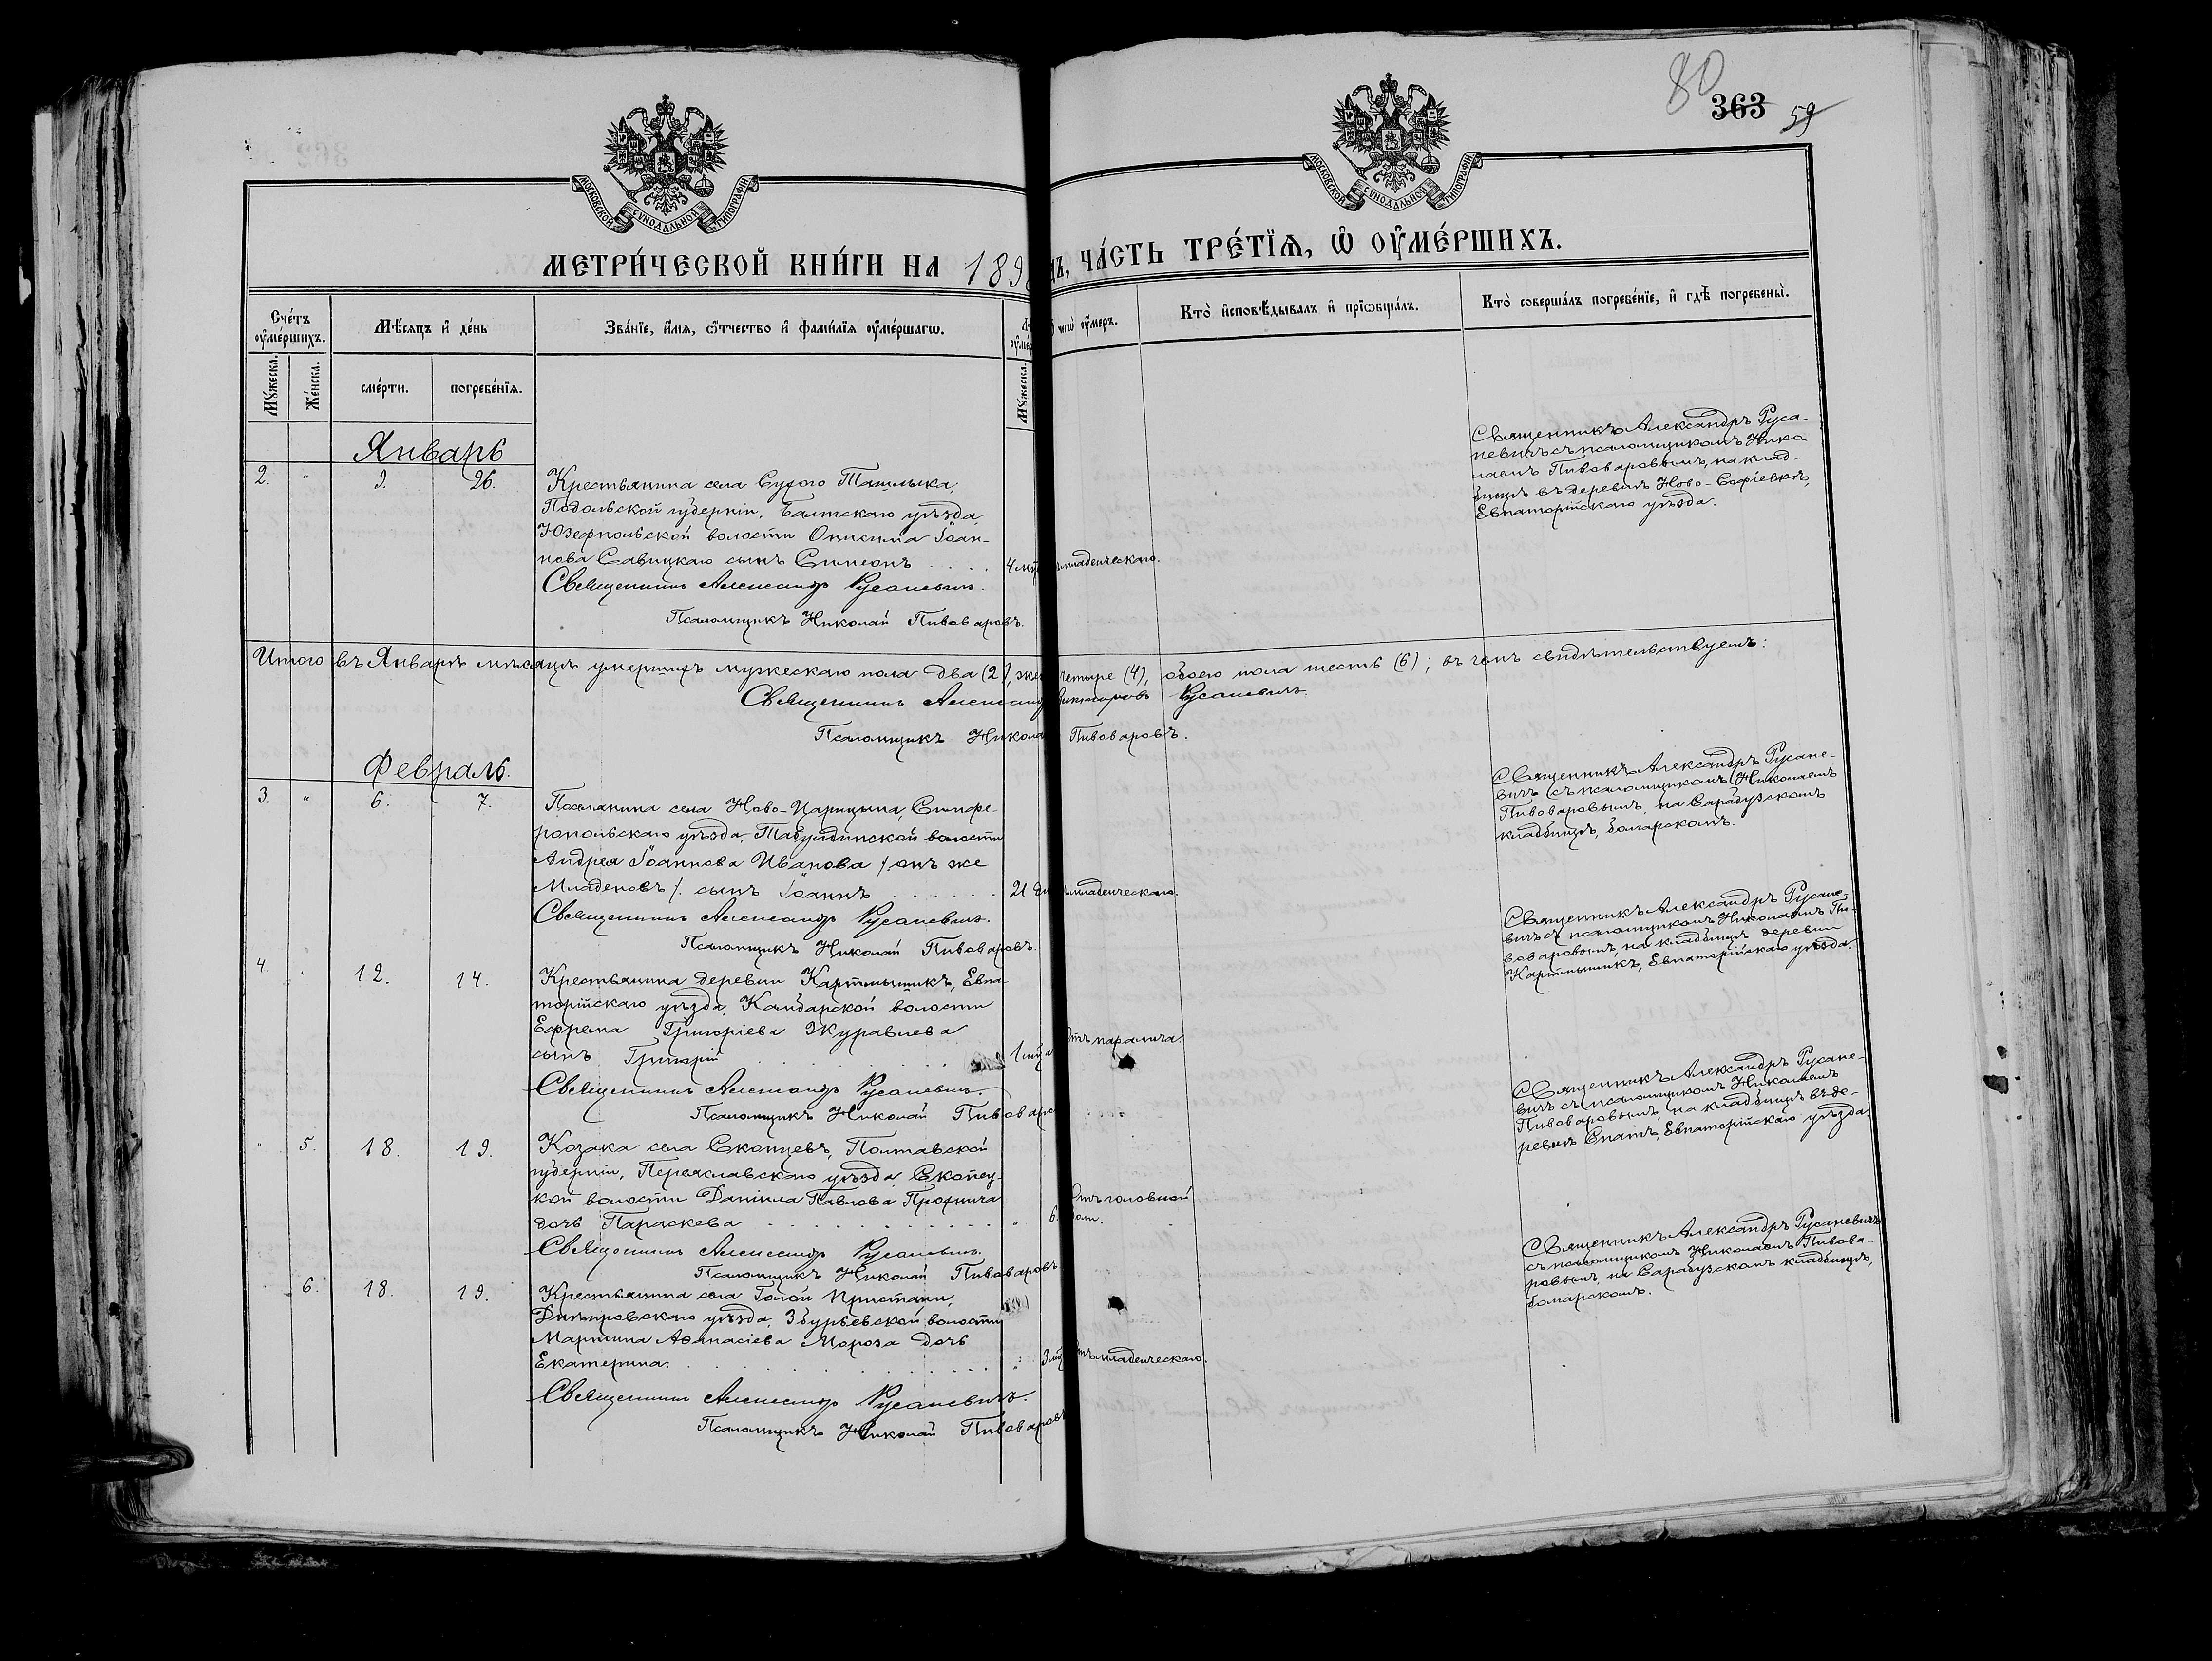 80
363 59
МОСКОВСКОЙ СУНОДАЛЬНОЙ ТИПОГРАФІИ
МОСКОВСКОЙ СУНОДАЛЬНОЙ ТИПОГРАФІИ
МЕТРИ́ЧЕСКОЙ КНИ́ГИ НА 189
ЧА́СТЬ ТРЕ́ТЇѦ, Ѡ ОУМЕ́РШИХЪ.
Сче́тъ оуме́ршихъ.
Мꙋжеска.
Же́нска.
Мѣсѧцъ и де́нь
сме́рти.
погребе́нїѧ.
Зва́нїе, и́мѧ, ѻ́тчество и фами́лїѧ оуме́ршагѡ.
Мꙋжеска.
чегѡ̀ оу́меръ.
Кто̀ и҆сповѣ́дывалъ и҆ прїѡбща́лъ.
Кто̀ соверша́лъ погребе́нїе, и҆ гдѣ̀ погребены̀.
Январь
2. " 9. 26.
Крестьянина села Сухого Ташлыка,
Подольской губерніи, Балтскаго уѣзда,
Юзефпольской волости Онисима Іоан-
нова Савицкаго сынъ Симеонъ . . . . 4 младенческаго.
Священникъ Александръ Русаневичъ.
Псаломщикъ Николай Пивоваровъ.
Священникъ Александръ Руса-
невичъ съ псаломщикомъ Нико-
лаемъ Пивоваровымъ, на клад-
бищѣ въ деревнѣ Ново-Софіевкѣ,
Евпаторійскаго уѣзда.
Итого въ Январѣ мѣсяцѣ умершихъ мужескаго пола два (2), четыре (4), обоего пола шесть (6); въ чемъ свидѣтельствуемъ:
Священникъ Русаневичъ.
Псаломщикъ Никола Пивоваровъ.
Февраль.
3. " 6. 7.
Поселянина села Ново-Царицына, Симфе-
ропольскаго уѣзда, Табулдинской волости
Андрея Іоаннова Иванова /. онъ же
Младеновъ /. сынъ Іоаннъ . . . . . . 21 младенческаго.
Священникъ Александръ Русаневичъ.
Псаломщикъ Николай Пивоваровъ.
Священникъ Александръ Русане-
вичъ съ псаломщикомъ Николаемъ
Пивоваровымъ, на Сарабузскомъ
кладбищѣ, болгарскомъ.
4. " 12. 14.
Крестьянина деревни Картмышикъ, Евпа-
торійскаго уѣзда, Камбарской волости
Ефрема Григоріева Журавлева
сынъ Григорій 1 паралича.
Священникъ Александръ Русаневичъ.
Псаломщикъ Николай Пивоваро
Священникъ Александръ Русане-
вичъ съ псаломщикомъ Николаемъ Пи-
воваровымъ, на кладбищѣ деревни
Картмышикъ, Евпаторійскаго уѣзда.
" 5. 18. 19.
Козака села Скопцевъ, Полтавской
губерніи, Переяславскаго уѣзда, Скопец-
кой волости Даніила Павлова
дочь Параскева . . . . . . . . . " 6. головной
боли.
Священникъ Александръ Русаневичъ.
Псаломщикъ Николай Пивоваровъ
Священникъ Александръ Русане-
вичъ съ псаломщикомъ Николаемъ
Пивоваровымъ, на кладбищѣ въ де-
ревнѣ Спатъ, Евпаторійскаго уѣзда.
6. 18. 19.
Крестьянина села Голой Пристани,
Днѣпровскаго уѣзда, Збурьевской волости
Мартина Аѳанасіева Мороза дочь
Екатерина. . . . . . . . . " 3 младенческаго.
Священникъ Александръ Русаневичъ.
Псаломщикъ Николай Пивоваровъ
Священникъ Александръ Русаневичъ
съ псаломщикомъ Николаемъ Пивова-
ровымъ, на Сарабузскомъ кладбищѣ,
болгарскомъ.